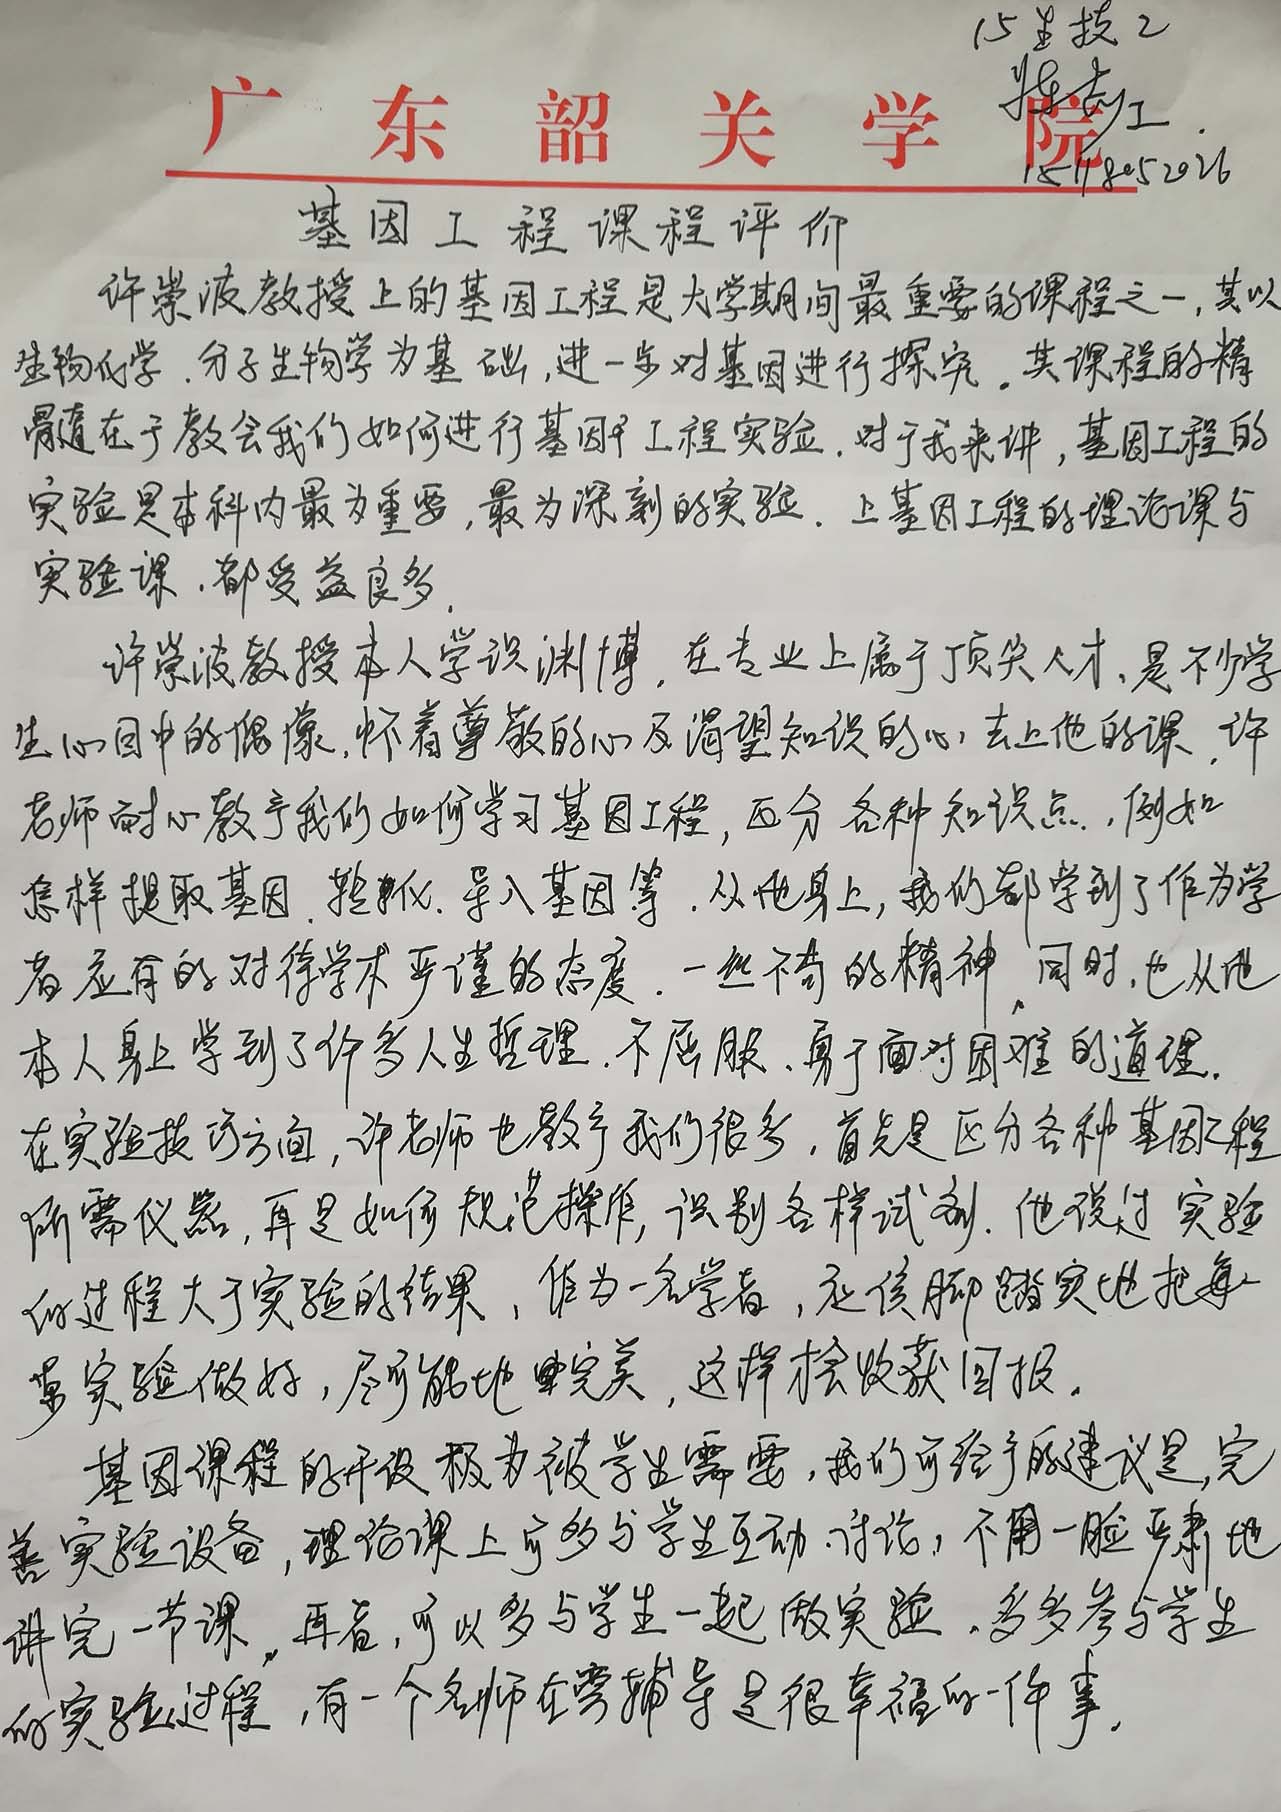 15生技2
广东韶关学院
15118052026
基因工程课程评价
许崇波教授上的基因工程是大学期间最重要的课程之一,其以
生物化学、分子生物学为基础,进一步对基因进行探究。其课程的精
髓在于教会我们如何进行基因工程实验。对于我来讲,基因工程的
实验是本科内最为重要,最为深刻的实验。上基因工程的理论课与
实验课,都受益良多。
许崇波教授本人学识渊博,在专业上属于顶尖人才,是不少学
生心目中的偶像,怀着尊敬的心及渴望知识的心去上他的课。许
老师耐心教予我们如何学习基因工程,区分各种知识点,例如
怎样提取基因、导入基因等。从他身上,我们都学到了作为学
者应有的对待学术严谨的态度、一丝不苟的精神。同时,也从他
本人身上学到了许多人生哲理、不屈服、勇于面对困难的道理。
在实验技巧方面,许老师也教予我们很多,首先是区分各种基因工程
所需仪器,再是如何规范操作,识别各样试剂。他说过实验
的过程大于实验的结果,作为一名学者,应该脚踏实地把每一
实验做好,尽可能地完美,这样才会收获回报。
基因课程的开设极为被学生需要,我们可给予的建议是,完
善实验设备,理论课上可多与学生互动、讨论,不用一脸严肃地
讲完一节课。再者,可以多与学生一起做实验,多多参与学生
的实验过程,有一个名师在旁辅导是很幸福的一件事。